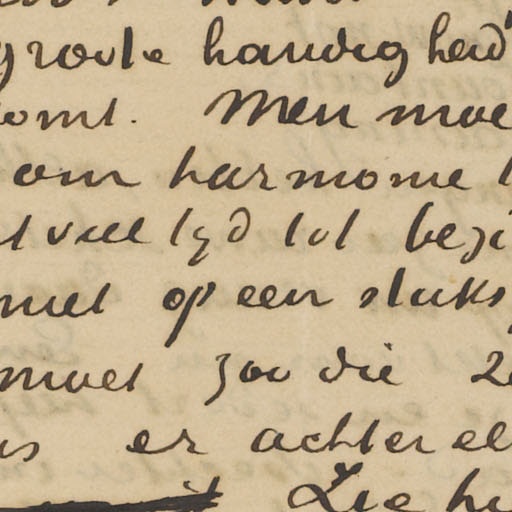 groote handigheid
komt. Men moe
om harmonie
veel tyd tot bezi
niet op een stuks
moet zoo die
er achter el
Zie hi